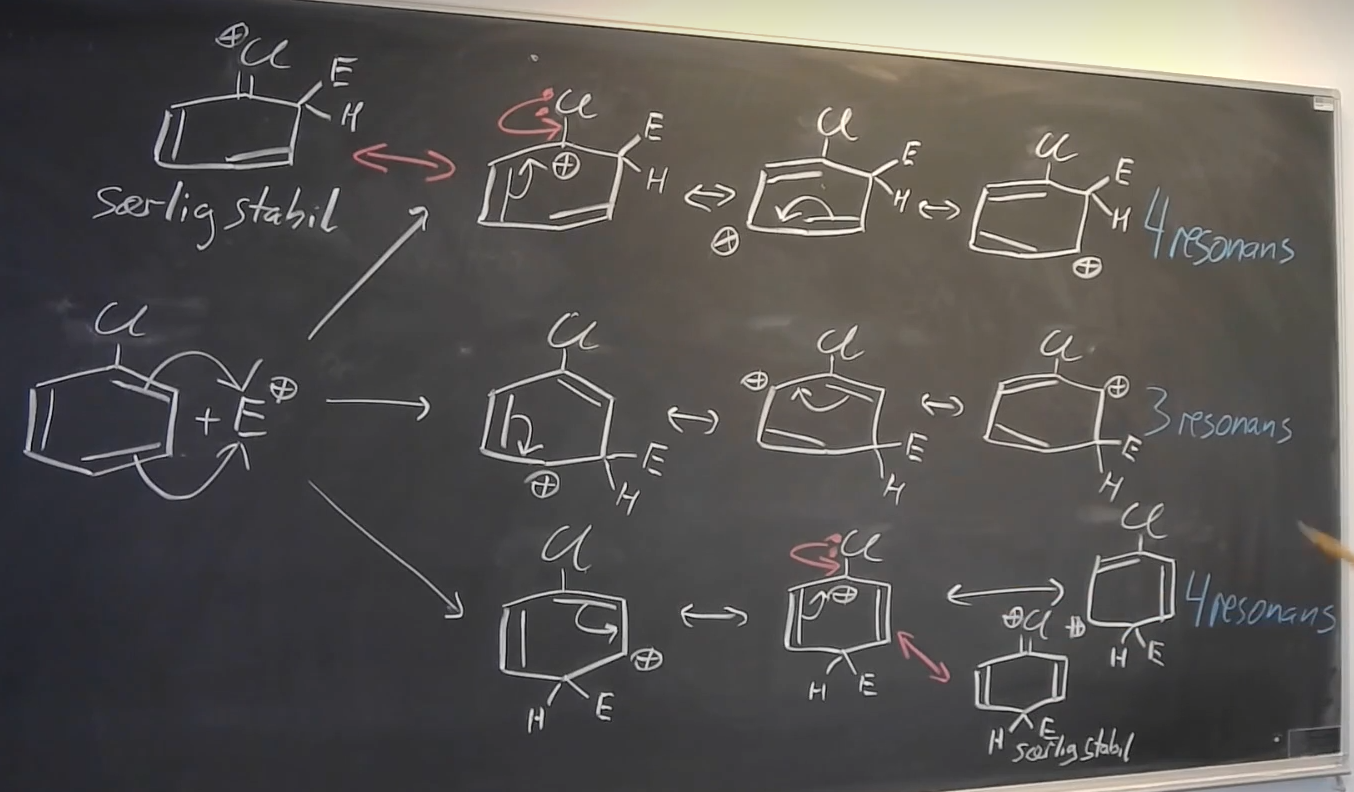 ⊕Cl
E
H
særlig stabil
Cl
E
H
⊕
Cl
E
H
⊕
Cl
E
H
⊕
4 resonans
Cl
+ E⊕
Cl
E
H
⊕
Cl
⊕
E
H
Cl
⊕
E
H
3 resonans
Cl
⊕
H E
Cl
⊕
H E
⊕Cl
H E
særlig stabil
Cl
⊕
H E
4 resonans